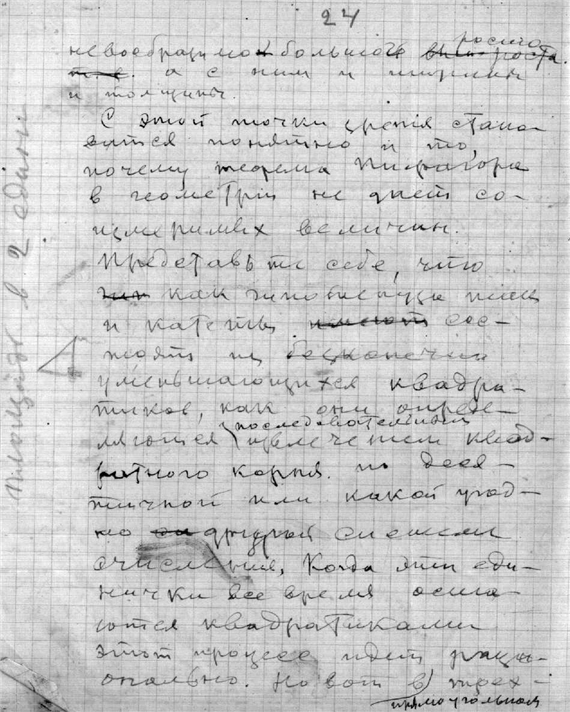 24
невообразимо большого роста.
а с ним и ширины
и толщины.
С этой точки зрения стано-
вится понятно и то,
почему теорема Пифагора
в геометрии не дает со-
измеримых величин.
Представьте себе, что
как гипотенуза так
и катеты сос-
тоят из бесконечно
уменьшающихся квадра-
тиков, как они опреде-
ляются последовательным
извлечением квад-
ратного корня по деся-
тичной или какой угод-
но другой системе
счисления. Когда эти еди-
нички все время оста-
ются квадратиками
этот процесс идет рацио-
нально. Но вот в трех-
прямоугольном
площадь в 2 единиц